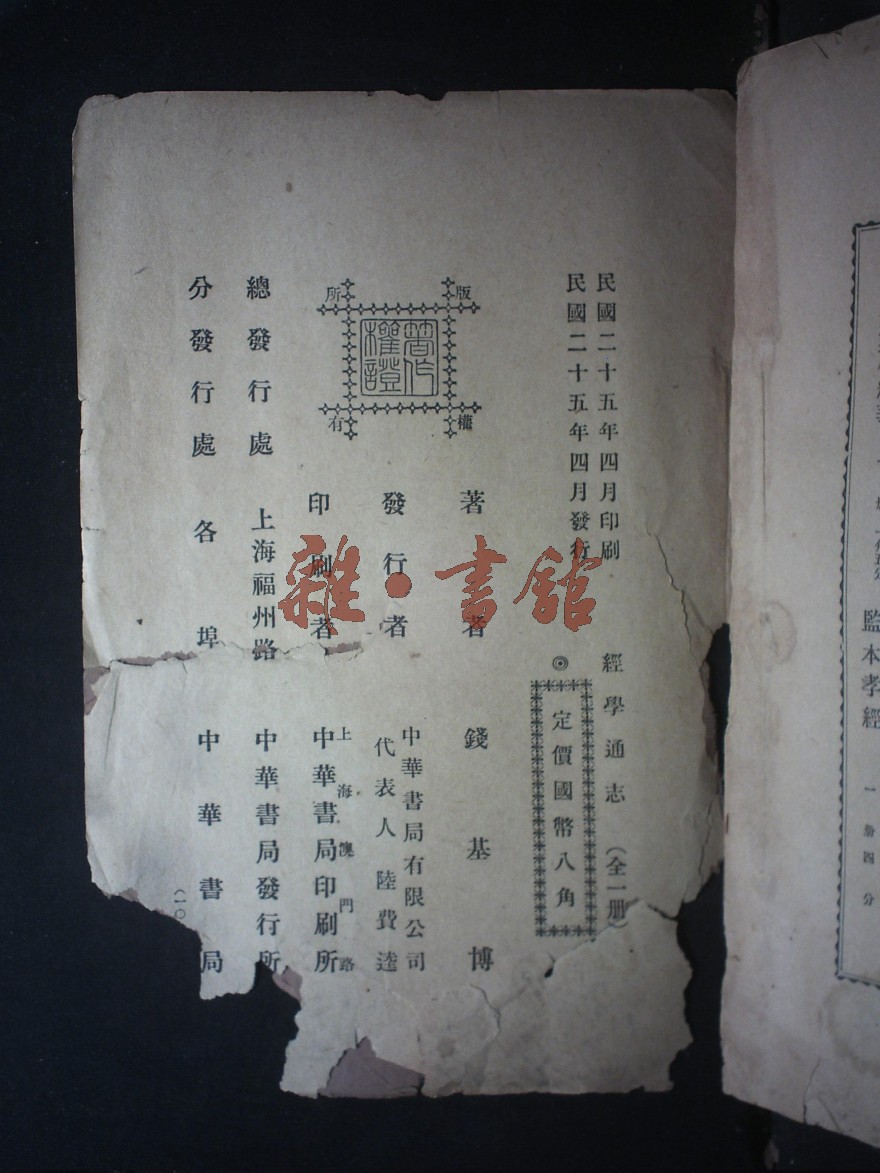 民國二十五年四月印刷
民國二十五年四月發行
經學通志(全一册)
◎定價國幣八角
著者 錢基博
發行者 中華書局有限公司
代表人 陸費逵
印刷者 上海澳門路
中華書局印刷所
總發行處 上海福州路 中華書局發行所
分發行處 各埠 中華書局
版權所有
著作權證
雜·書館
監本孝經 一册四分